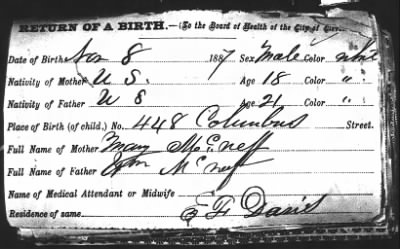 RETURN OF A BIRTH.—(To the Board of Health of the City of
Date of Birth Nov 8 1887 Sex Male Color white
Nativity of Mother U S. Age 18 Color " "
Nativity of Father U S Age 21 Color " "
Place of Birth (of child.) No. 448 Columbus Street.
Full Name of Mother Mary McNeff
Full Name of Father McNeff
Name of Medical Attendant or Midwife
Residence of same E F Davis